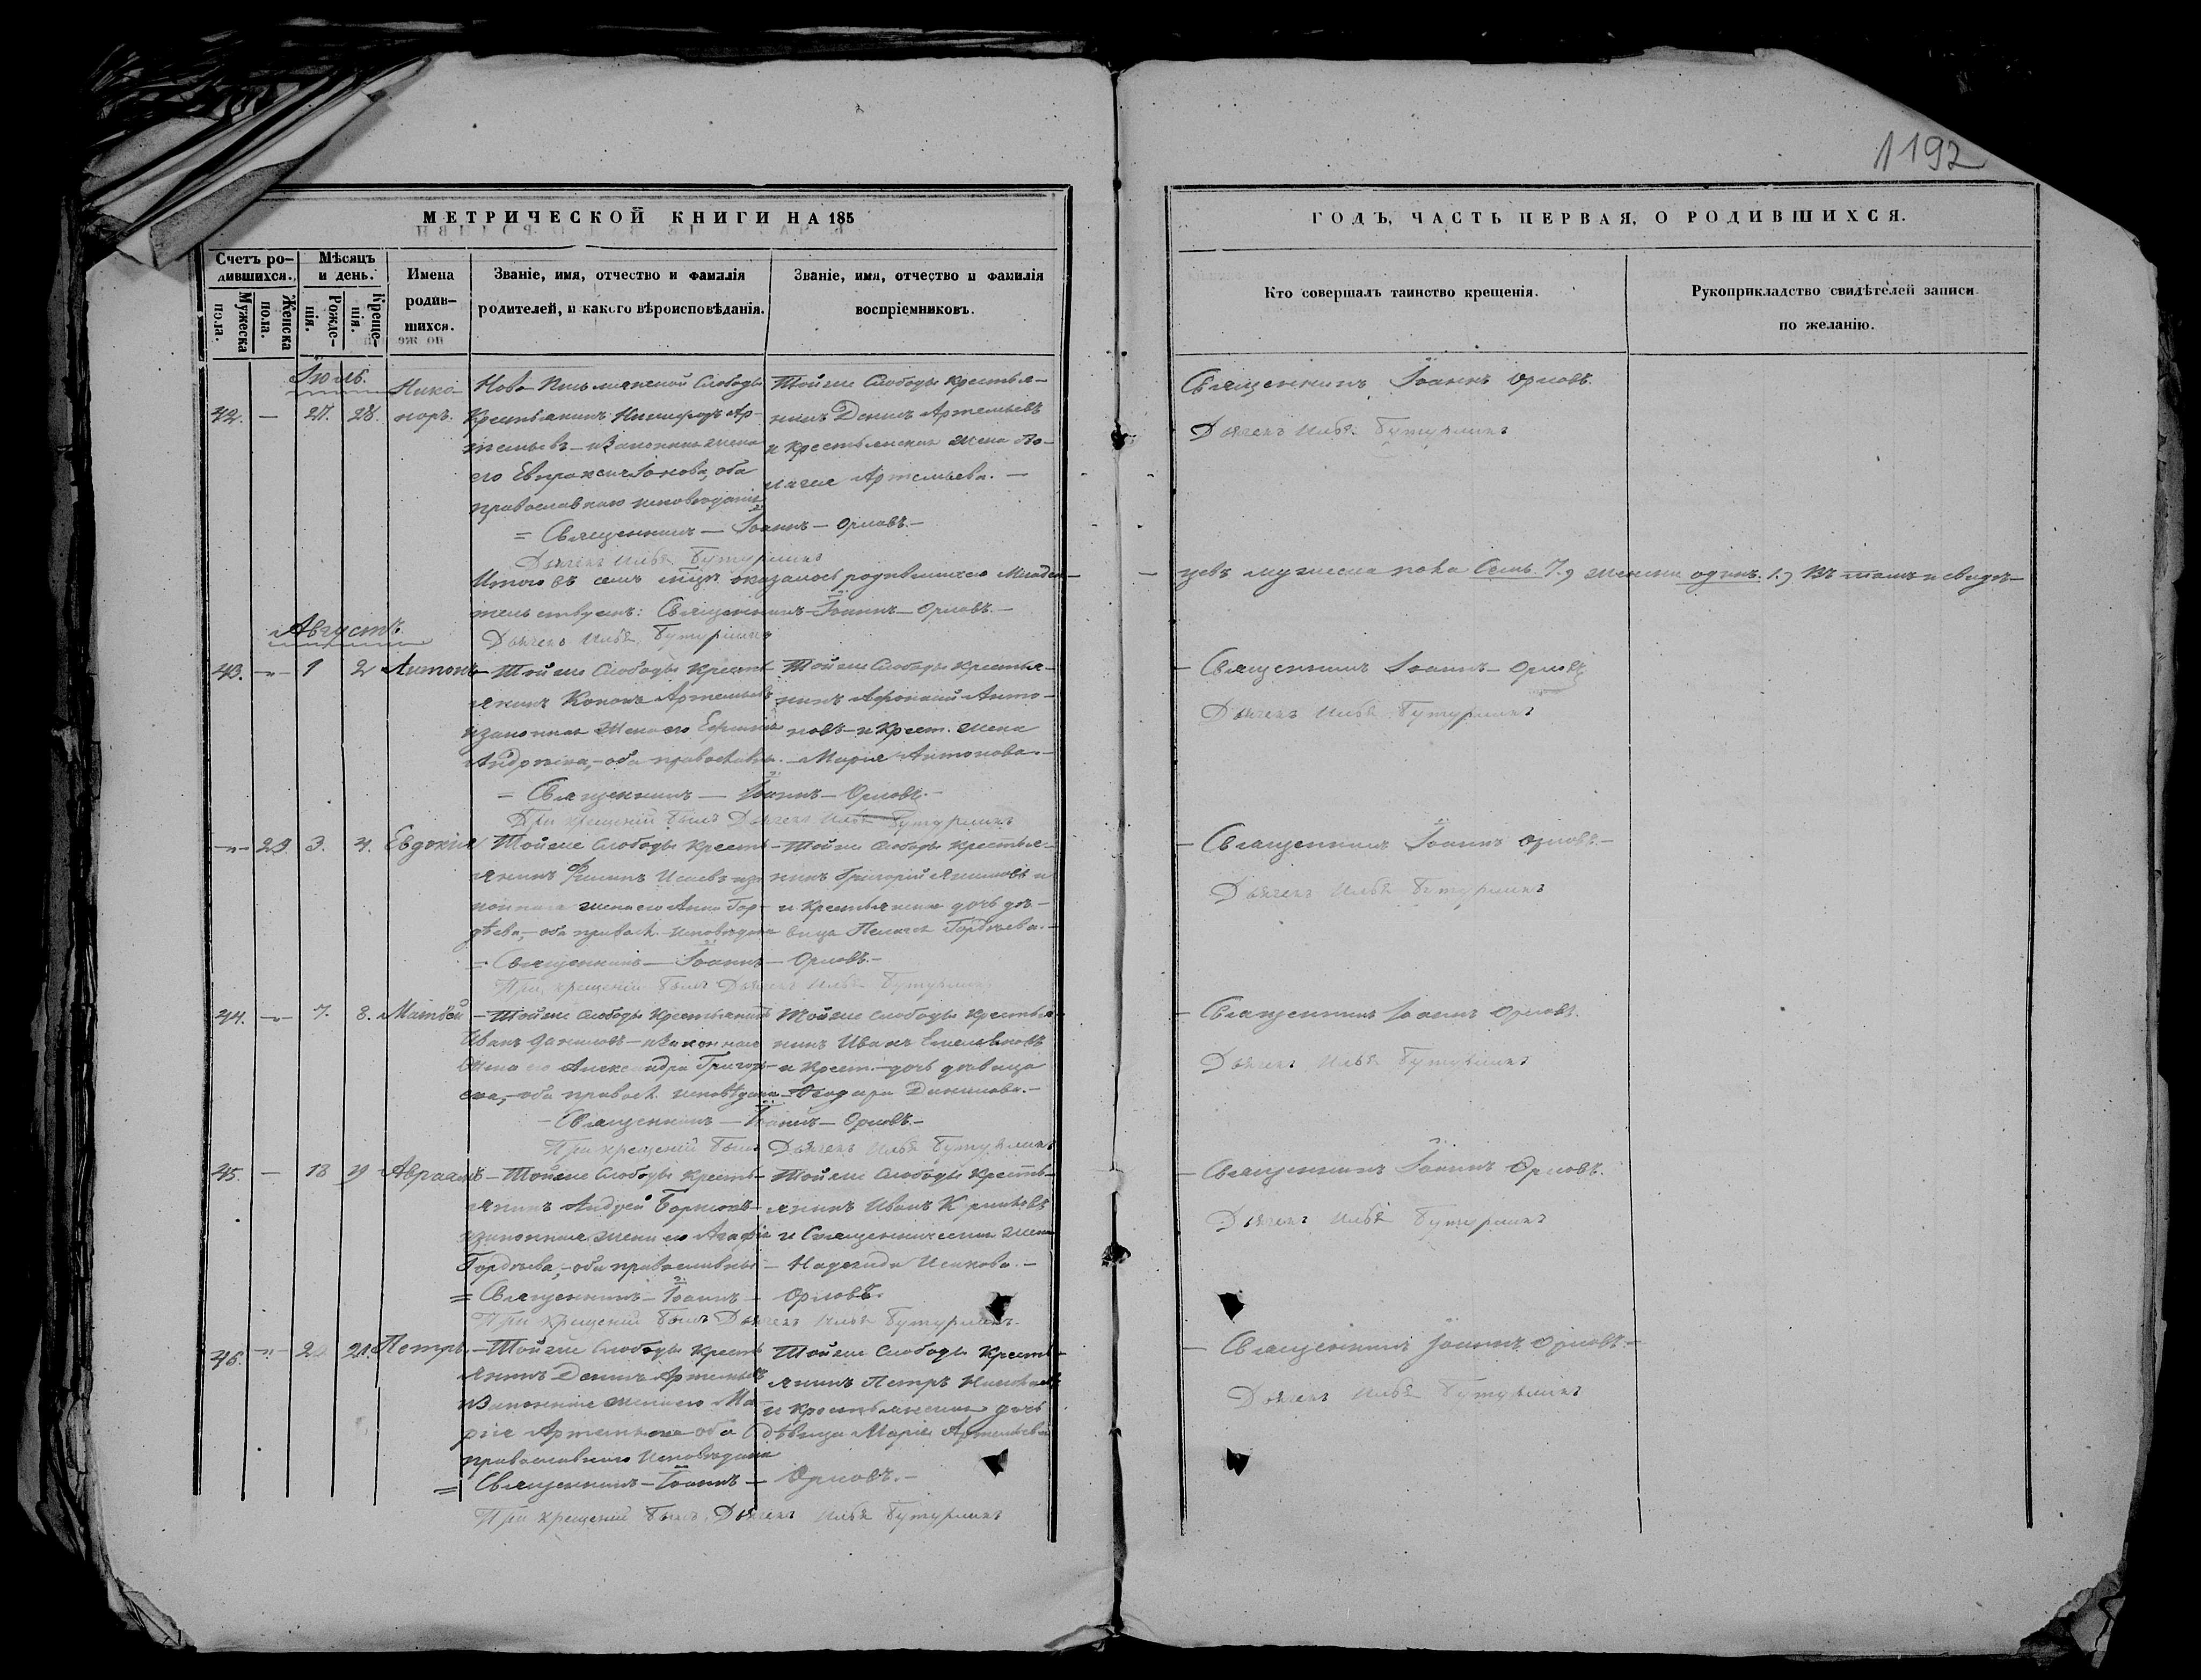 1192
МЕТРИЧЕСКОЙ КНИГИ НА 185
ГОДЪ, ЧАСТЬ ПЕРВАЯ, О РОДИВШИХСЯ.
Счетъ ро-
дившихся.
Мужеска
пола.
Женска
пола.
Мѣсяцъ
и день.
Рожде-
нія.
Креще-
нія.
Имена
родив-
шихся.
Званіе, имя, отчество и фамилія
родителей, и какого вѣроисповѣданія.
Званіе, имя, отчество и фамилія
воспріемниковъ.
Кто совершалъ таинство крещенія.
Рукоприкладство свидѣтелей записи
по желанію.
Іюль.
42. — 27. 28. Никаноръ.
Слободы
Крестьянинъ Ар-
темьевъ и законная жена
его Евпраксія оба
православнаго исповѣданія
Тойже Слободы крестья-
нинъ Данилъ Артемьевъ
и крестьянская жена
Артемьева. —
= Священникъ — Іоаннъ — Орловъ. —
Дьячекъ Илья Бутурлинъ
Священникъ Іоаннъ Орловъ.
Дьячекъ Илья Бутурлинъ
Итого въ семъ оказалось родившихся Младен-
цевъ мужеска пола Семь. 7, женска одинъ. 1, въ томъ и свидѣ-
тельствуемъ: Священникъ — Іоаннъ — Орловъ. —
Дьячекъ Илья Бутурлинъ
Августъ.
43. — 1 2 Антонъ
Тойже Слободы Кресть-
янинъ Кононъ Артемьевъ
и законная жена его
Андреева, — оба православн.
Тойже Слободы крестья-
нинъ Афонасій Анто-
новъ — и крест. жена
Марія Антонова. —
= Священникъ — Іоаннъ — Орловъ. —
При крещеніи былъ Дьячекъ Илья Бутурлинъ
— Священникъ Іоаннъ — Орловъ
Дьячекъ Илья Бутурлинъ
— 29. 3. 4. Евдокія
Тойже Слободы Кресть-
янинъ Филипъ Исаевъ и за-
конная жена его Анна Гор-
дѣева, — оба правосл. исповѣданія
Тойже Слободы Крестья-
нинъ Григорій
и Крестьянская дочь дѣ-
вица Пелагея Гордѣева. —
= Священникъ — Іоаннъ — Орловъ. —
При крещеніи былъ Дьячекъ Илья Бутурлинъ
— Священникъ Іоаннъ Орловъ. —
Дьячекъ Илья Бутурлинъ
44. — 7. 8. Матвѣй
— Тойже Слободы Крестьянинъ
Иванъ Даниловъ — и законная
жена его Александра Григорь-
ева, — оба правосл. исповѣданія
Тойже Слободы Крестья-
нинъ Иванъ Емельяновъ
и Крест. — дочь дѣвица
Данилова. —
— Священникъ — Іоаннъ — Орловъ. —
При крещеніи былъ Дьячекъ Илья Бутурлинъ
— Священникъ Іоаннъ Орловъ.
Дьячекъ Илья Бутурлинъ
45. — 18 19 Авраамъ
— Тойже Слободы Кресть-
янинъ Андрей
и законная жена его Агафія
Гордѣева, — оба православные
Тойже Слободы Кресть-
янинъ Иванъ
и Священническая жена
Надежда Исакова. —
= Священникъ — Іоаннъ — Орловъ.
При крещеніи былъ Дьячекъ Илья Бутурлинъ.
— Священникъ Іоаннъ Орловъ.
Дьячекъ Илья Бутурлинъ
46. — 21. Петръ.
— Тойже Слободы Кресть-
янинъ Данилъ Артемьевъ
и законная жена его Ма-
рія оба
православнаго Исповѣданія
Тойже Слободы Кресть-
янинъ Петръ
и Крестьянская дочь
дѣвица Марія Артемьева
= Священникъ — Іоаннъ — Орловъ. —
При крещеніи былъ Дьячекъ Илья Бутурлинъ
— Священникъ Іоаннъ Орловъ. —
Дьячекъ Илья Бутурлинъ